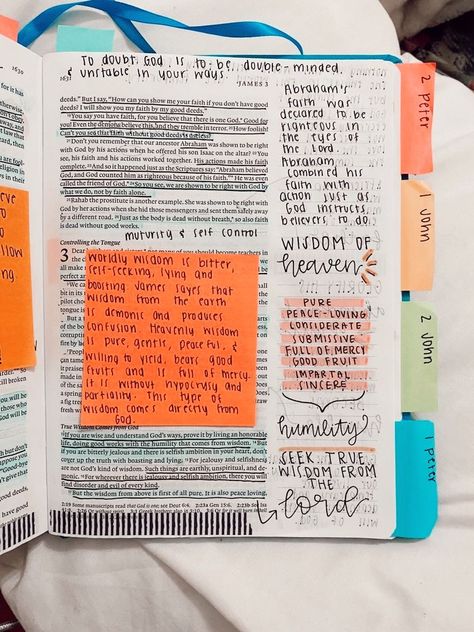 To doubt God is to be double-minded
& unstable in your ways.
1631
JAMES 3
deeds." But I say, "How can you show me your faith if you don't have good
deeds? I will show you my faith by my good deeds."
19"You say you have faith, for you believe that there is one God. Good for
you! Even the demons believe this, and they tremble in terror. 20How foolish!
Can't you see that faith without good deeds is useless?
21Don't you remember that our ancestor Abraham was shown to be right
with God by his actions when he offered his son Isaac on the altar? 22You
see, his faith and his actions worked together. His actions made his faith
complete. 23And so it happened just as the Scriptures say: "Abraham believed
God, and God counted him as righteous because of his faith." He was even
called the friend of God. 24So you see, we are shown to be right with God by
what we do, not by faith alone.
25Rahab the prostitute is another example. She was shown to be right with
God by her actions when she hid those messengers and sent them safely away
by a different road. 26Just as the body is dead without breath, so also faith
is dead without good works.
muturity & self control
Controlling the Tongue
3 Dear brothers and sisters, not many of you should become teachers
Worldly wisdom is bitter,
self-seeking, lying and
boasting James says that
wisdom from the earth
is demonic and produces
confusion. Heavenly wisdom
is pure, gentle, peaceful, &
willing to yield, bears good
fruits and is full of mercy.
It is without hypocrisy and
partiality. This type of
wisdom comes directly from
God.
True Wisdom Comes from God
13If you are wise and understand God's ways, prove it by living an honorable
life, doing good works with the humility that comes from wisdom. 14But
if you are bitterly jealous and there is selfish ambition in your heart, don't
cover up the truth with boasting and lying. 15For jealousy and selfishness
are not God's kind of wisdom. Such things are earthly, unspiritual, and de-
monic. 16For wherever there is jealousy and selfish ambition, there you will
find disorder and evil of every kind.
17But the wisdom from above is first of all pure. It is also peace loving,
2:19 Some manuscripts read that God is one; see Deut 6:4. 2:21 Gen 15:6. 2:23a
Abraham's
faith was
declared to be
righteous in
the eyes of
the Lord.
Abraham
combined his
faith with
action just as
God instructs
believers to do.
WISDOM OF
heaven
PURE
PEACE-LOVING
CONSIDERATE
SUBMISSIVE
FULL OF MERCY
GOOD FRUIT
IMPARTAL
SINCERE
humility
SEEK TRUE
WISDOM FROM
THE
Lord
2 peter
1 John
2 John
1 peter